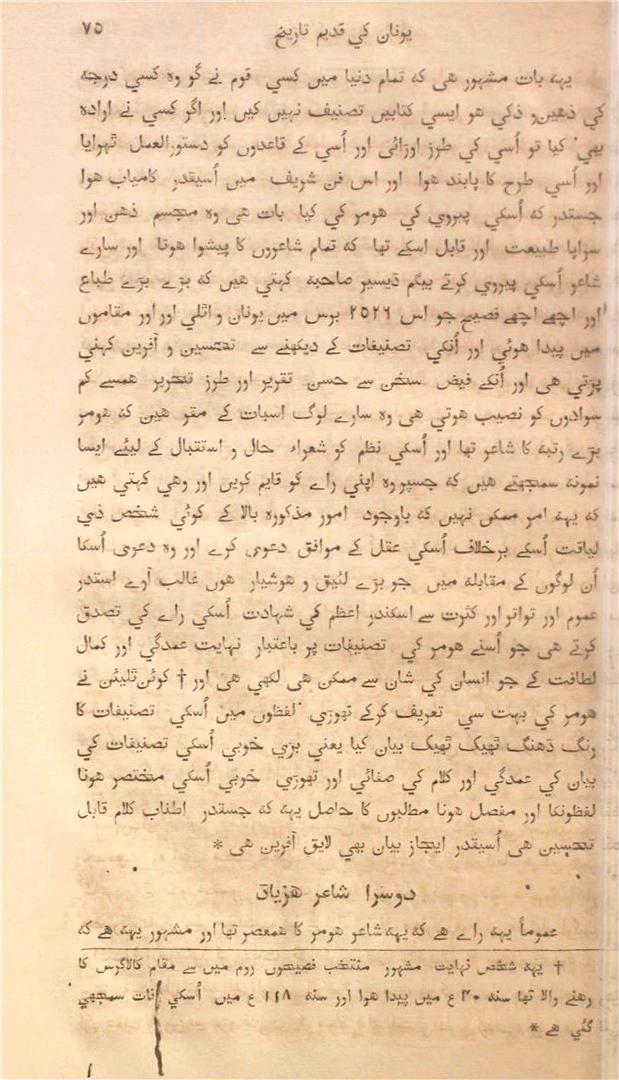 یونان کي قدیم تاریخ ۷۵
یہہ بات مشہور ھی کہ تمام دنیا میں کسي قوم نے گو وہ کسي درجہ
کي ذھین و ذکي ھو ایسي کتابیں تصنیف نہیں کیں اور اگر کسي نے ارادہ
بھي کیا تو اُسي کي طرز اوزائی اور اُسي کے قاعدوں کو دستور العمل ٹہرایا
اور اُسي طرح کا پابند ھوا اور اس فن شریف میں اُسیقدر کامیاب ھوا
جسقدر کہ اُسکي پیروي کي ھومر کي کیا بات ھی وہ مجسم ذھن اور
سراپا طبیعت اور قابل اسکے تھا کہ تمام شاعروں کا پیشوا ھوتا اور سارے
شاعر اُسکي پیروي کرتے بیگم ڈیسیر صاحبہ کہتي ھیں کہ بڑے بڑے طباع
اور اچھے اچھے فصیح جو اس ۲۵۲۶ برس میں یونان و اٹلي اور اور مقاموں
میں پیدا ھوئي اور اُنکي تصنیفات کے دیکھنے سے تحسین و آفرین کہني
پڑتي ھی اور اُنکے فیض سخن سے حسن تقریر اور طرز تحریر ھمسے کم
سوادوں کو نصیب ھوتي ھی وہ سارے لوگ اسبات کے مقر ھیں کہ ھومر
بڑے رتبہ کا شاعر تھا اور اُسکي نظم کو شعراء حال و استقبال کے لیئے ایسا
نمونہ سمجھتے ھیں کہ جسپر وہ اپني راے کو قایم کریں اور وھي کہتي ھیں
کہ یہہ امر ممکن نہیں کہ باوجود امور مذکورہ بالا کے کوئي شخص ذي
لیاقت اُسکے برخلاف اُسکي عقل کے موافق دعوی کرے اور وہ دعوی اُسکا
اُن لوگوں کے مقابلہ میں جو بڑے لئیق و ھوشیار ھوں غالب آوے استدر
عموم اور تواتر اور کثرت سے اسکندر اعظم کي شہادت اُسکي راے کي تصدق
کرتے ھی جو اُسنے ھومر کي تصنیفات پر باعتبار نہایت عمدگي اور کمال
لطافت کے جو انسان کي شان سے ممکن ھی لکھي ھی اور † کوئن ٹلیئن نے
ھومر کي بہت سي تعریف کرکے تھوڑي لفظوں میں اُسکي تصنیفات کا
رنگ ڈھنگ ٹھیک ٹھیک بیان کیا یعني بڑي خوبي اُسکي تصنیفات کي
بیان کي عمدگي اور کلام کي صفائي اور تھوڑي خوبي اُسکي مختصر ھونا
لفظونکا اور مفصل ھونا مطلبوں کا حاصل یہہ کہ جسقدر اطناب کلام قابل
تحسین ھی اُسیقدر ایجاز بیان بھي لایق آفرین ھی *
دوسرا شاعر ھزیاڈ
عموماً یہہ راے ھے کہ یہہ شاعر ھومر کا ھمعصر تھا اور مشہور یہہ ھے کہ
† یہہ شخص نہایت مشہور منتخب فصیحوں روم میں سے مقام کالاگرس کا
رھنے والا تھا سنہ ۴۰ ع میں پیدا ھوا اور سنہ ۱۱۸ ع میں اُسکي سمجھي
گئي ھے *